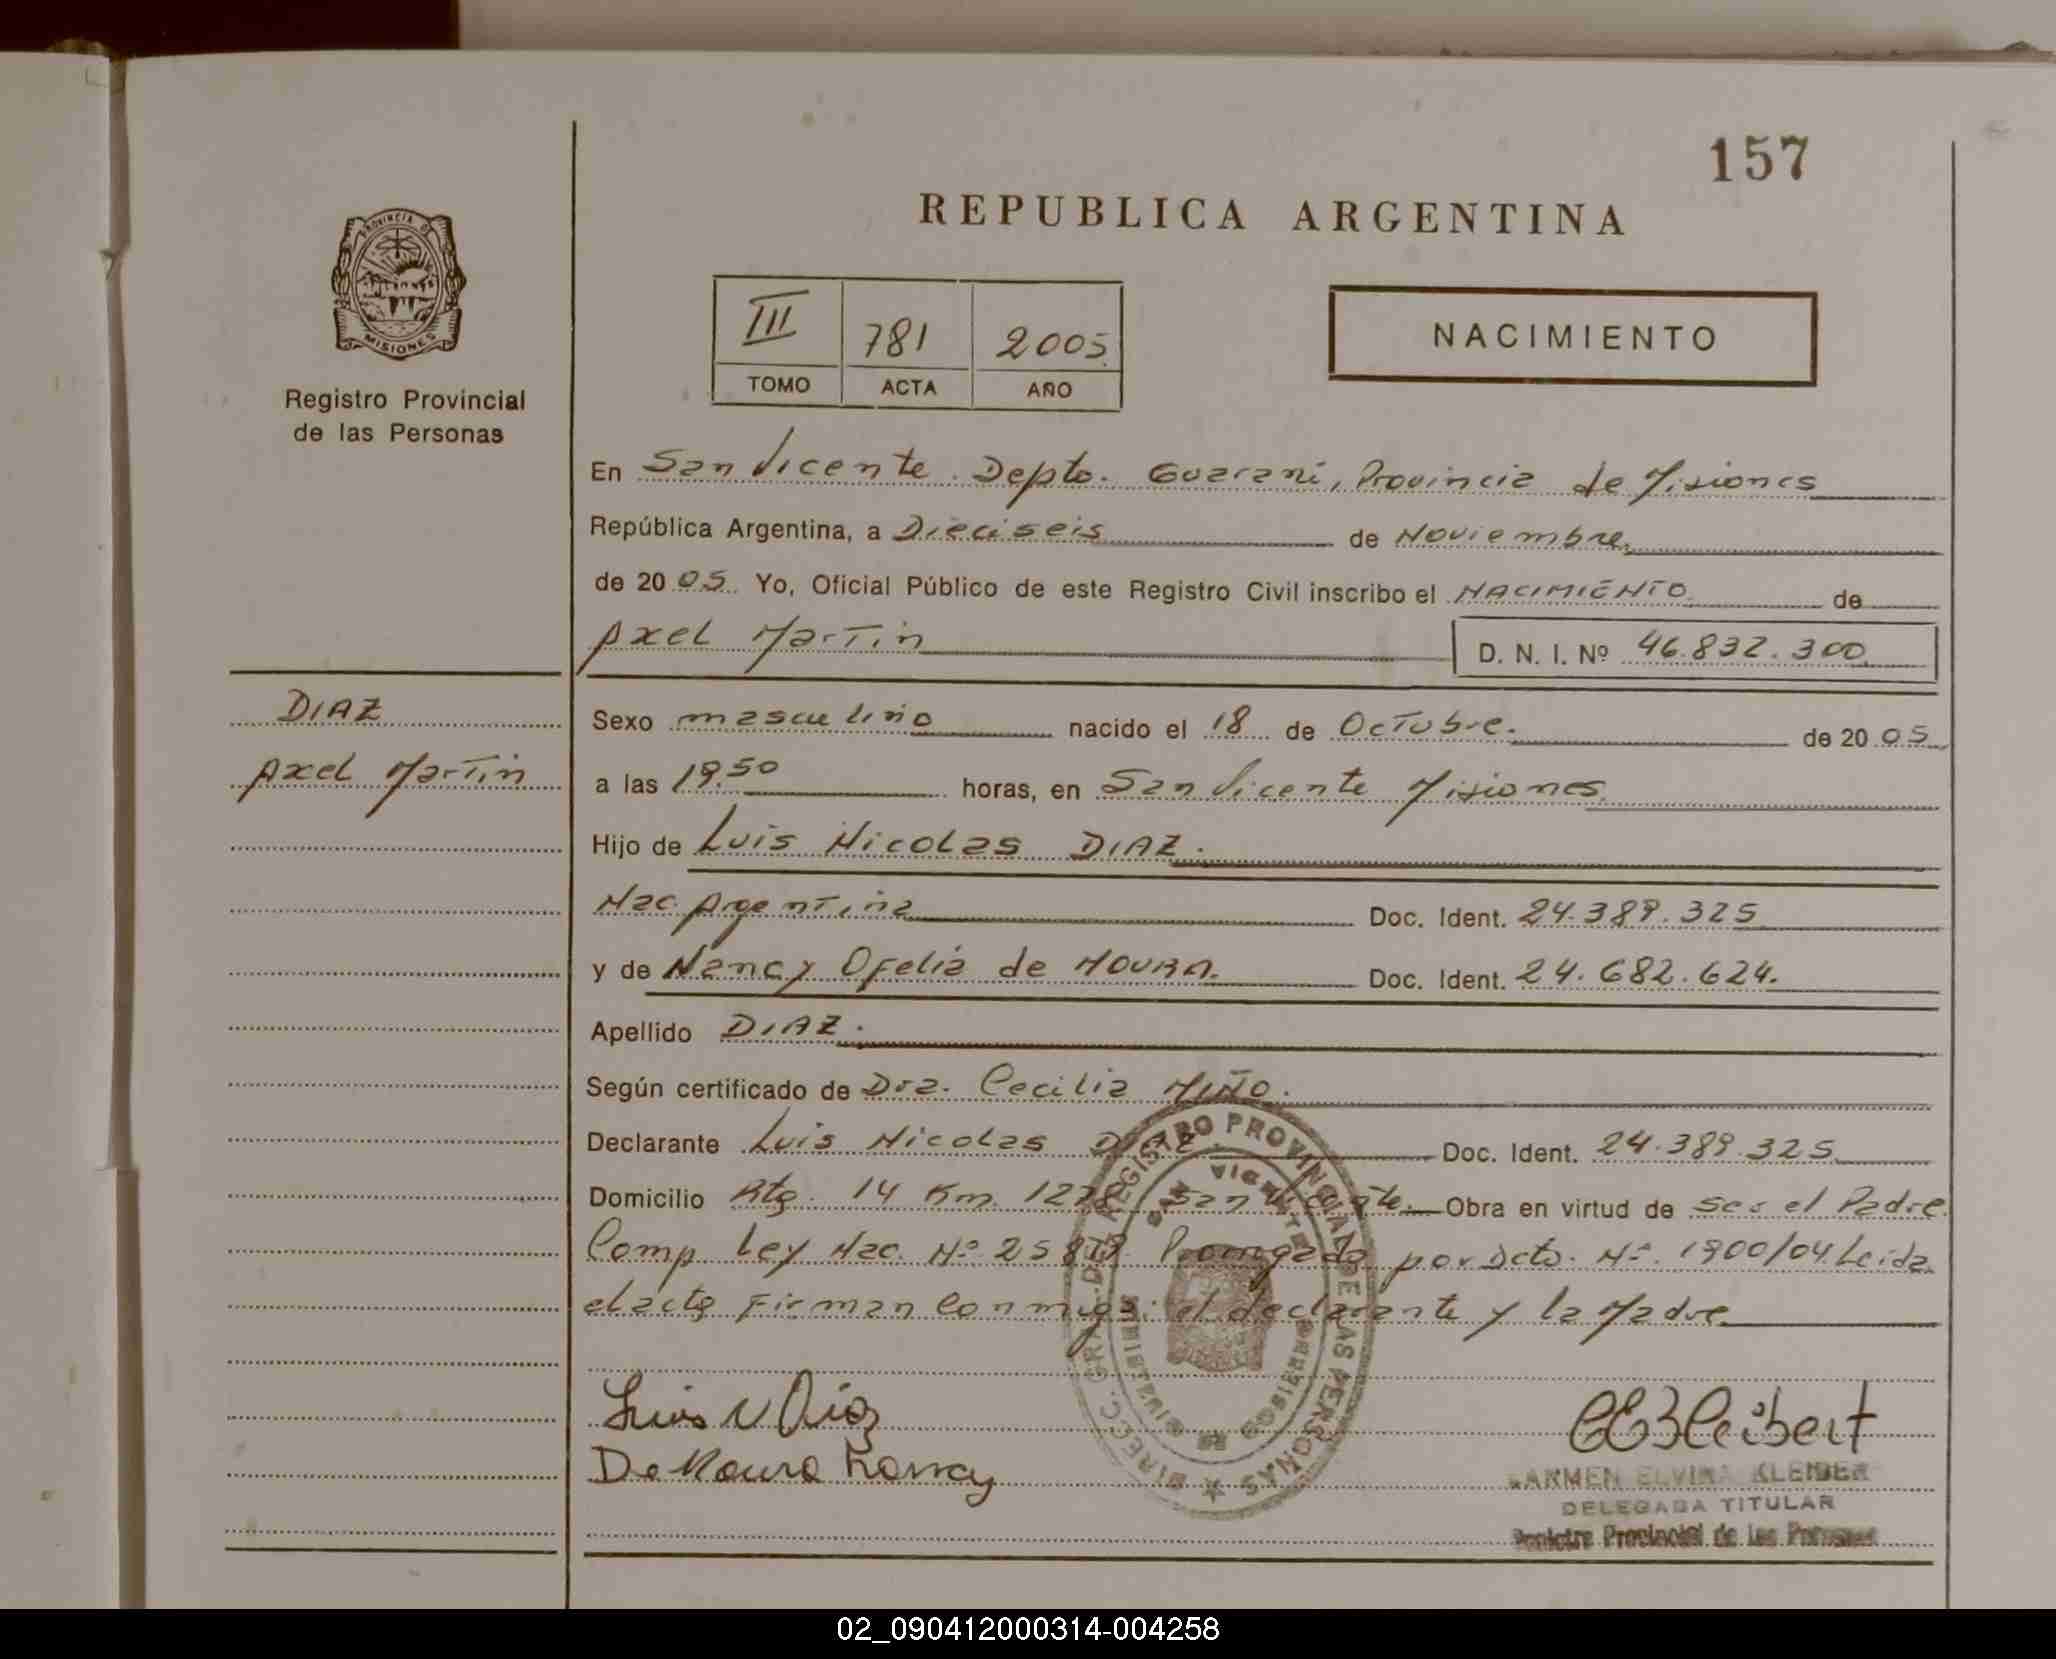 157
REPUBLICA ARGENTINA
PROVINCIA DE
MISIONES
Registro Provincial
de las Personas
III 781 2005
TOMO ACTA AÑO
NACIMIENTO
En San Vicente. Depto. Guarani, Provincia de Misiones
República Argentina, a Dieciseis de Noviembre
de 2005 Yo, Oficial Público de este Registro Civil inscribo el NACIMIENTO de
Axel Martin D. N. I. Nº 46.832.300
DIAZ
Axel Martin
Sexo masculino nacido el 18 de Octubre. de 2005
a las 19.50 horas, en San Vicente Misiones
Hijo de Luis Nicolas DIAZ.
Nac. Argentina Doc. Ident. 24.389.325
y de Nancy Ofelia de MOURA. Doc. Ident. 24.682.624.
Apellido DIAZ.
Según certificado de Dra. Cecilia MIÑO.
Declarante Luis Nicolas DIAZ Doc. Ident. 24.389.325
Domicilio Rta. 14 Km. 1278 San Vicente. Obra en virtud de ser el Padre.
Comp. Ley Nac. Nº 25819 por Dcto. Nº. 1900/04. Leida
el acta Firman Conmigo: el declarante y la Madre
Luis N Diaz
De Moura Nancy
DIRECC. GRAL. DEL REGISTRO PROVINCIAL DE LAS PERSONAS
SAN VICENTE
MINISTERIO DE GOBIERNO
CARMEN ELVIRA KLEIBER
DELEGADA TITULAR
Registro Provincial de las Personas
02_090412000314-004258